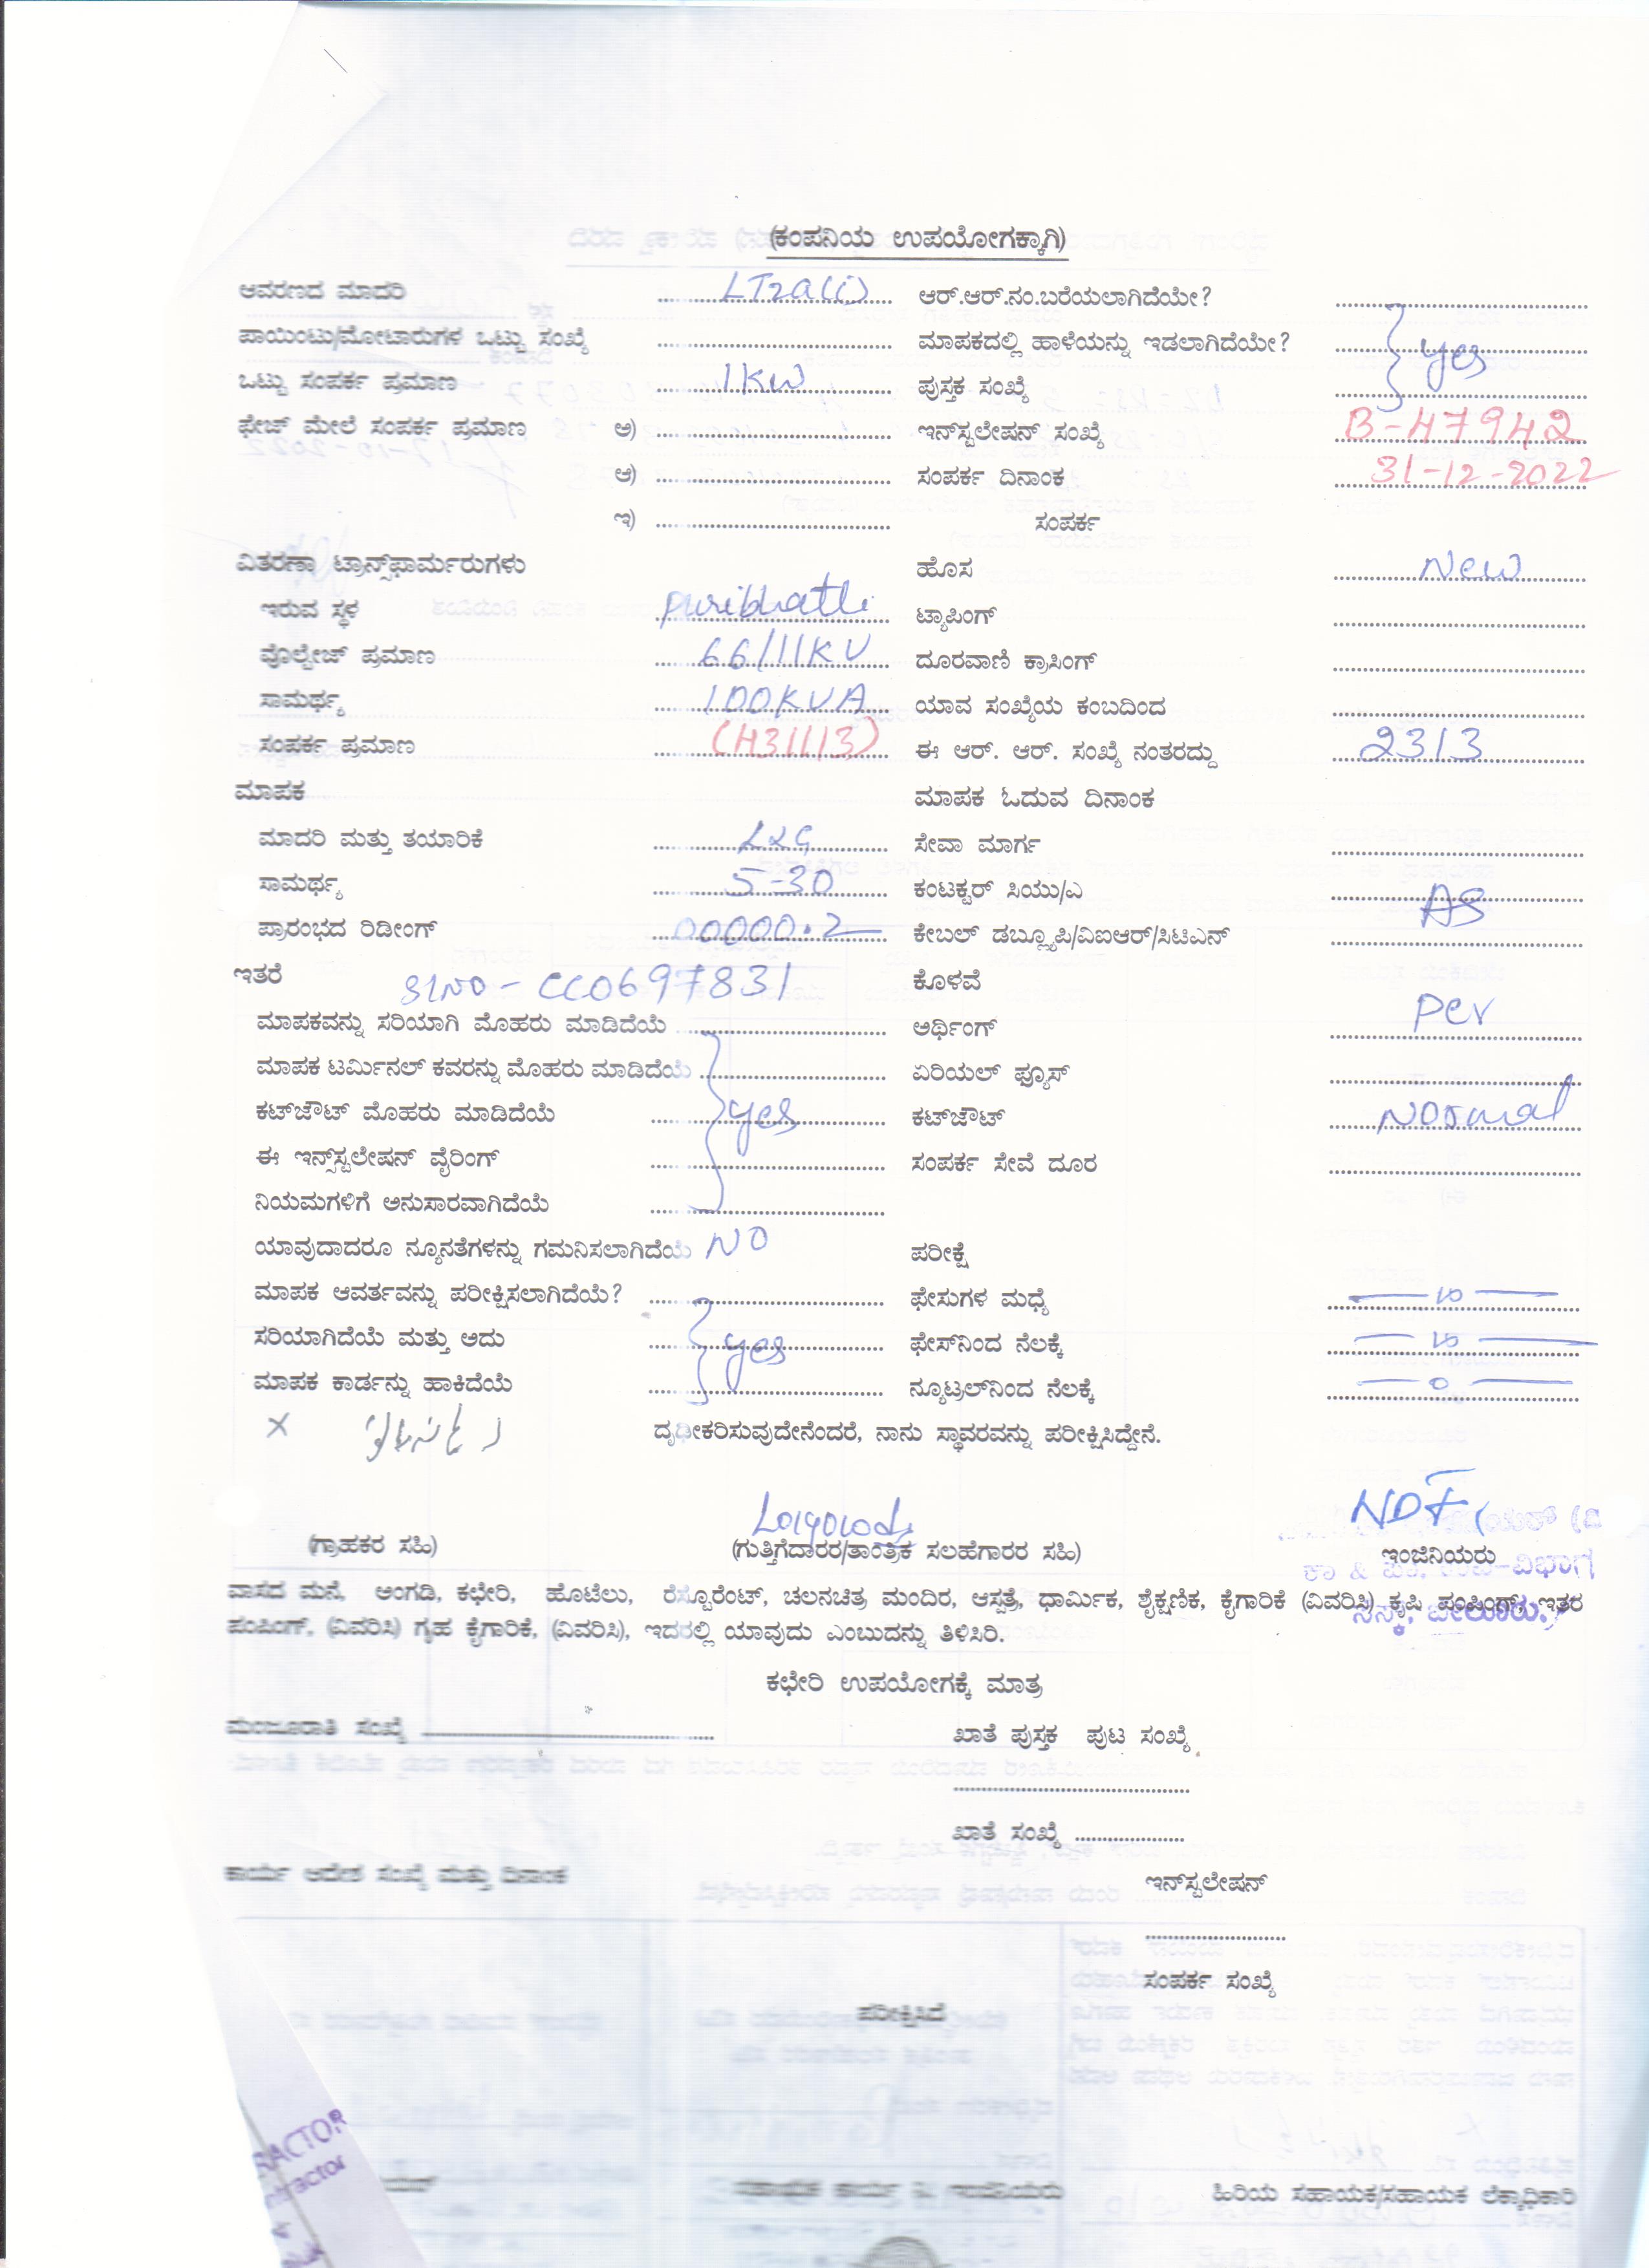 (ಕಂಪನಿಯ ಉಪಯೋಗಕ್ಕಾಗಿ)
ಆವರಣದ ಮಾದರಿ LT2a(i) ಆರ್.ಆರ್.ನಂ.ಬರೆಯಲಾಗಿದೆಯೇ?
ಪಾಯಿಂಟು/ಮೋಟಾರುಗಳ ಒಟ್ಟು ಸಂಖ್ಯೆ ಮಾಪಕದಲ್ಲಿ ಹಾಳೆಯನ್ನು ಇಡಲಾಗಿದೆಯೇ? yes
ಒಟ್ಟು ಸಂಪರ್ಕ ಪ್ರಮಾಣ 1KW ಪುಸ್ತಕ ಸಂಖ್ಯೆ
ಫೇಜ್ ಮೇಲೆ ಸಂಪರ್ಕ ಪ್ರಮಾಣ ಅ) ಇನ್‌ಸ್ಟಲೇಷನ್ ಸಂಖ್ಯೆ B-47942
ಆ) ಸಂಪರ್ಕ ದಿನಾಂಕ 31-12-2022
ಇ) ಸಂಪರ್ಕ
ವಿತರಣಾ ಟ್ರಾನ್ಸ್‌ಫಾರ್ಮರುಗಳು ಹೊಸ New
ಇರುವ ಸ್ಥಳ puribhatti ಟ್ಯಾಪಿಂಗ್
ವೊಲ್ಟೇಜ್ ಪ್ರಮಾಣ 66/11KV ದೂರವಾಣಿ ಕ್ರಾಸಿಂಗ್
ಸಾಮರ್ಥ್ಯ 100KVA ಯಾವ ಸಂಖ್ಯೆಯ ಕಂಬದಿಂದ
ಸಂಪರ್ಕ ಪ್ರಮಾಣ (H31113) ಈ ಆರ್. ಆರ್. ಸಂಖ್ಯೆ ನಂತರದ್ದು 2313
ಮಾಪಕ ಮಾಪಕ ಓದುವ ದಿನಾಂಕ
ಮಾದರಿ ಮತ್ತು ತಯಾರಿಕೆ L&G ಸೇವಾ ಮಾರ್ಗ
ಸಾಮರ್ಥ್ಯ 5-30 ಕಂಟಕ್ಟರ್ ಸಿಯು/ಎ
ಪ್ರಾರಂಭದ ರಿಡೀಂಗ್ 00000.2 ಕೇಬಲ್ ಡಬ್ಲ್ಯೂಪಿ/ವಿಐಆರ್/ಸಿಟಿಎನ್ AS
ಇತರೆ SLNO - CC0697831 ಕೊಳವೆ
ಮಾಪಕವನ್ನು ಸರಿಯಾಗಿ ಮೊಹರು ಮಾಡಿದೆಯೆ ಅರ್ಥಿಂಗ್ Per
ಮಾಪಕ ಟರ್ಮಿನಲ್ ಕವರನ್ನು ಮೊಹರು ಮಾಡಿದೆಯೆ ಏರಿಯಲ್ ಫ್ಯೂಸ್
ಕಟ್‌ಜೌಟ್ ಮೊಹರು ಮಾಡಿದೆಯೆ yes ಕಟ್‌ಜೌಟ್ Normal
ಈ ಇನ್ಸ್‌ಸ್ಟಲೇಷನ್ ವೈರಿಂಗ್ ಸಂಪರ್ಕ ಸೇವೆ ದೂರ
ನಿಯಮಗಳಿಗೆ ಅನುಸಾರವಾಗಿದೆಯೆ
ಯಾವುದಾದರೂ ನ್ಯೂನತೆಗಳನ್ನು ಗಮನಿಸಲಾಗಿದೆಯೆ NO ಪರೀಕ್ಷೆ
ಮಾಪಕ ಆವರ್ತವನ್ನು ಪರೀಕ್ಷಿಸಲಾಗಿದೆಯೆ? ಫೇಸುಗಳ ಮಧ್ಯೆ
ಸರಿಯಾಗಿದೆಯೆ ಮತ್ತು ಅದು yes ಫೇಸ್‌ನಿಂದ ನೆಲಕ್ಕೆ
ಮಾಪಕ ಕಾರ್ಡನ್ನು ಹಾಕಿದೆಯೆ ನ್ಯೂಟ್ರಲ್‌ನಿಂದ ನೆಲಕ್ಕೆ 0
ದೃಢೀಕರಿಸುವುದೇನೆಂದರೆ, ನಾನು ಸ್ಥಾವರವನ್ನು ಪರೀಕ್ಷಿಸಿದ್ದೇನೆ.
(ಗ್ರಾಹಕರ ಸಹಿ) (ಗುತ್ತಿಗೆದಾರರ/ತಾಂತ್ರಿಕ ಸಲಹೆಗಾರರ ಸಹಿ) ಇಂಜಿನಿಯರು
ವಾಸದ ಮನೆ, ಅಂಗಡಿ, ಕಛೇರಿ, ಹೊಟೆಲು, ರೆಸ್ಟೂರೆಂಟ್, ಚಲನಚಿತ್ರ ಮಂದಿರ, ಆಸ್ಪತ್ರೆ, ಧಾರ್ಮಿಕ, ಶೈಕ್ಷಣಿಕ, ಕೈಗಾರಿಕೆ (ವಿವರಿಸಿ) ಕೃಷಿ ಪಂಪಿಂಗ್, ಇತರ
ಪಂಪಿಂಗ್, (ವಿವರಿಸಿ) ಗೃಹ ಕೈಗಾರಿಕೆ, (ವಿವರಿಸಿ), ಇದರಲ್ಲಿ ಯಾವುದು ಎಂಬುದನ್ನು ತಿಳಿಸಿರಿ.
ಕಛೇರಿ ಉಪಯೋಗಕ್ಕೆ ಮಾತ್ರ
ಮಂಜೂರಾತಿ ಸಂಖ್ಯೆ ಖಾತೆ ಪುಸ್ತಕ ಪುಟ ಸಂಖ್ಯೆ
ಖಾತೆ ಸಂಖ್ಯೆ
ಕಾರ್ಯ ಆದೇಶ ಸಂಖ್ಯೆ ಮತ್ತು ದಿನಾಂಕ ಇನ್‌ಸ್ಟಲೇಷನ್
ಸಂಪರ್ಕ ಸಂಖ್ಯೆ
ಪರೀಕ್ಷಿಸಿದೆ
ಸಹಾಯಕ ಕಾರ್ಯ ನಿ. ಇಂಜಿನಿಯರು ಹಿರಿಯ ಸಹಾಯಕ/ಸಹಾಯಕ ಲೆಕ್ಕಾಧಿಕಾರಿ